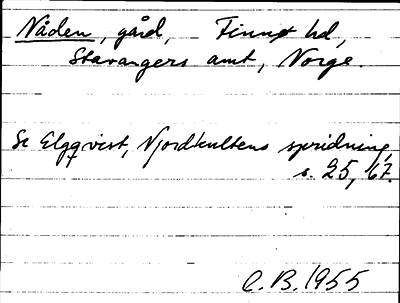 Nåden, gård, Finnø hd,
Stavangers amt, Norge.
Se Elgqvist, Njordkultens spridning,
s. 25, 67.
C.B. 1955